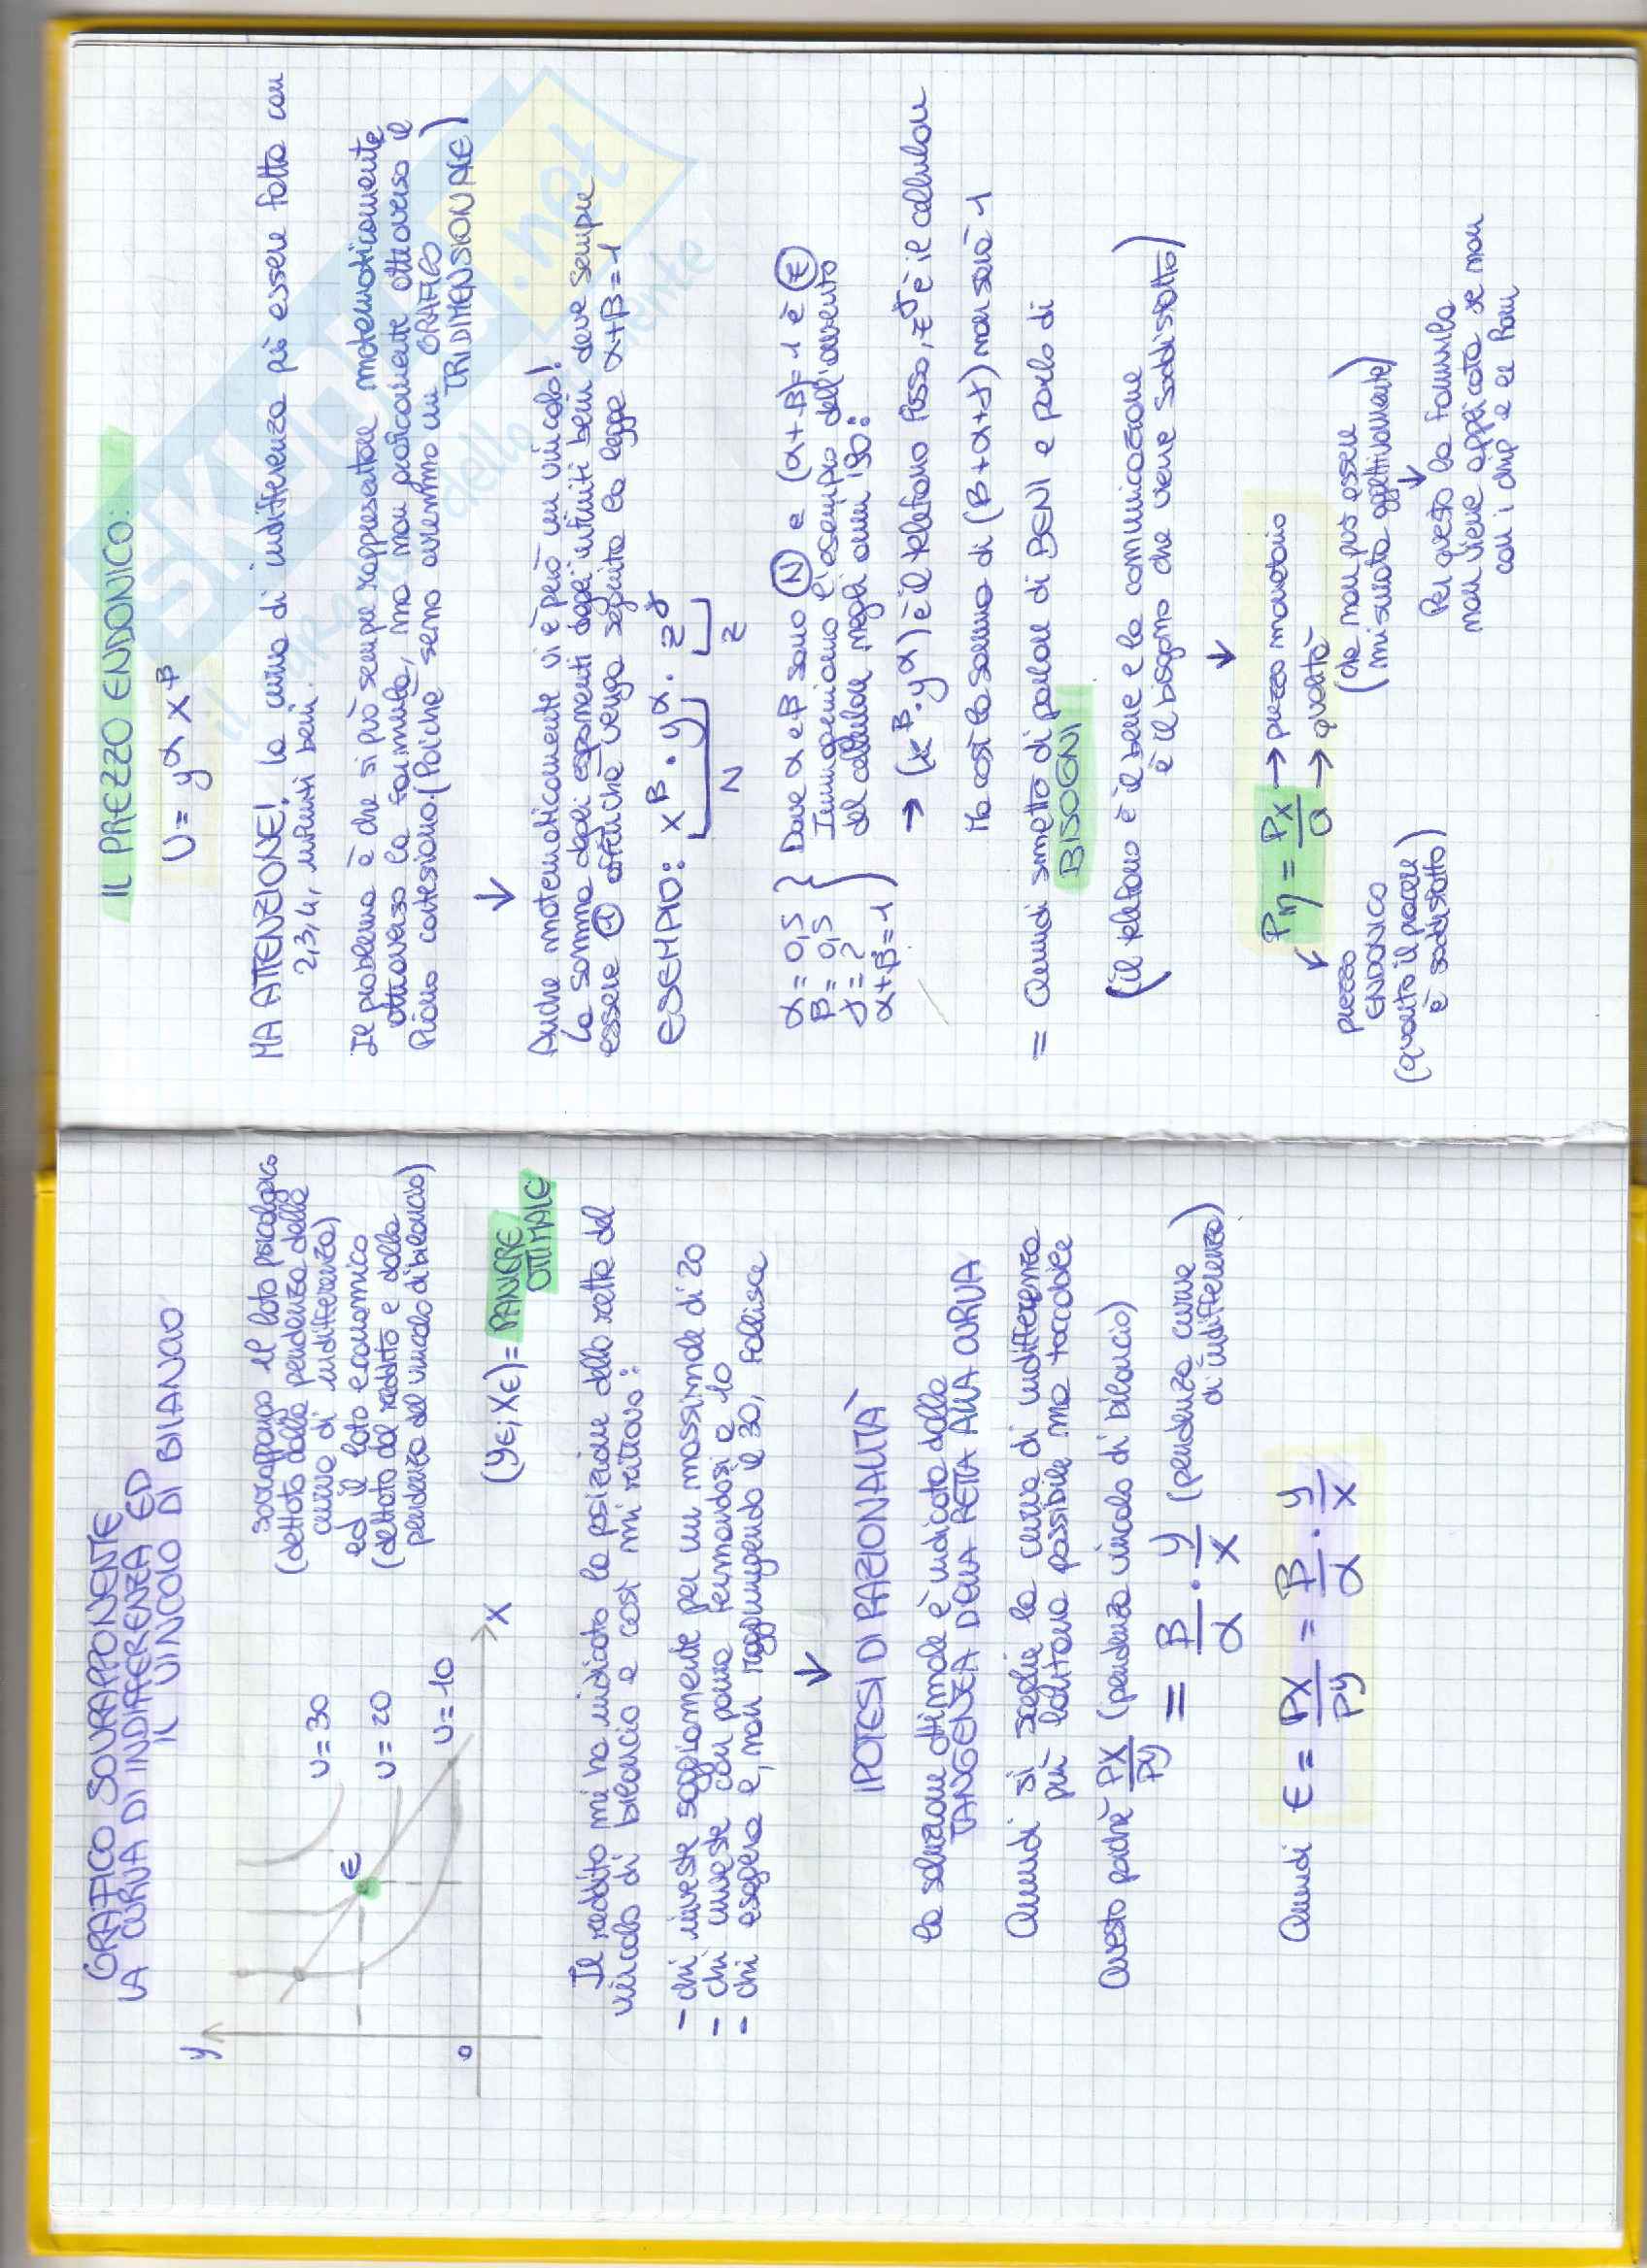 GRAFICO SOVRAPPONENTE
LA CURVA DI INDIFFERENZA ED
IL VINCOLO DI BIANCIO
y
U=30
U=20
U=10
E
X
0
sovrappongo il lato psicologico
(dettato dalla pendenza della
curva di indifferenza)
ed il lato economico
(dettato dal reddito e dalla
pendenza del vincolo di bilancio)
(yE; XE) = PANIERE
OTTIMALE
Il reddito mi ha indicato la posizione della retta del
vincolo di bilancio e così mi ritrovo:
- chi investe saggiamente per un massimale di 20
- chi investe con paura fermandosi a 10
- chi esagera e, non raggiungendo il 30, fallisce
↓
IPOTESI DI RAZIONALITÀ
La soluzione ottimale è indicata dalla
TANGENZA DELLA RETTA ALLA CURVA
Quindi si sceglie la curva di indifferenza
più lontana possibile ma toccabile
Questo poiché Px/Py (pendenza vincolo di bilancio)
= B/α · y/x (pendenza curva
di indifferenza)
Quindi E = Px/Py = B/α · y/x
IL PREZZO ENDONICO:
U = y^α x^B
MA ATTENZIONE! la curva di indifferenza può essere fatta con
2,3,4, infiniti beni.
Il problema è che si può sempre rappresentare matematicamente
attraverso la formula, ma non praticamente attraverso il
Piano cartesiano. (Poiché avremmo un GRAFICO
TRIDIMENSIONALE)
↓
Anche matematicamente vi è però un vincolo!
La somma degli esponenti degli infiniti beni deve sempre
essere 1 affinché venga seguita la legge α+B=1
ESEMPIO: x^B · y^α · z^γ
N
z
α = 0,5
B = 0,5
γ = ?
α+B=1
Dove α e B sono N e (α+B)=1 è E
Immaginiamo l'esempio dell'avvento
del cellulare negli anni '90:
→ (x^B · y^α) è il telefono fisso, z^γ è il cellulare
Ma così la somma di (B+α+γ) non sarà 1
= Quindi smetto di parlare di BENI e parlo di
BISOGNI
(il telefono è il bene e la comunicazione
è il bisogno che viene soddisfatto)
↓
Pη = Px/Q → prezzo monetario
→ qualità
(che non può essere
misurata oggettivamente)
↓
Per questo la formula
non viene applicata se non
prezzo
ENDONICO
(quanto il piacere
è soddisfatto)
SKUOLA.net